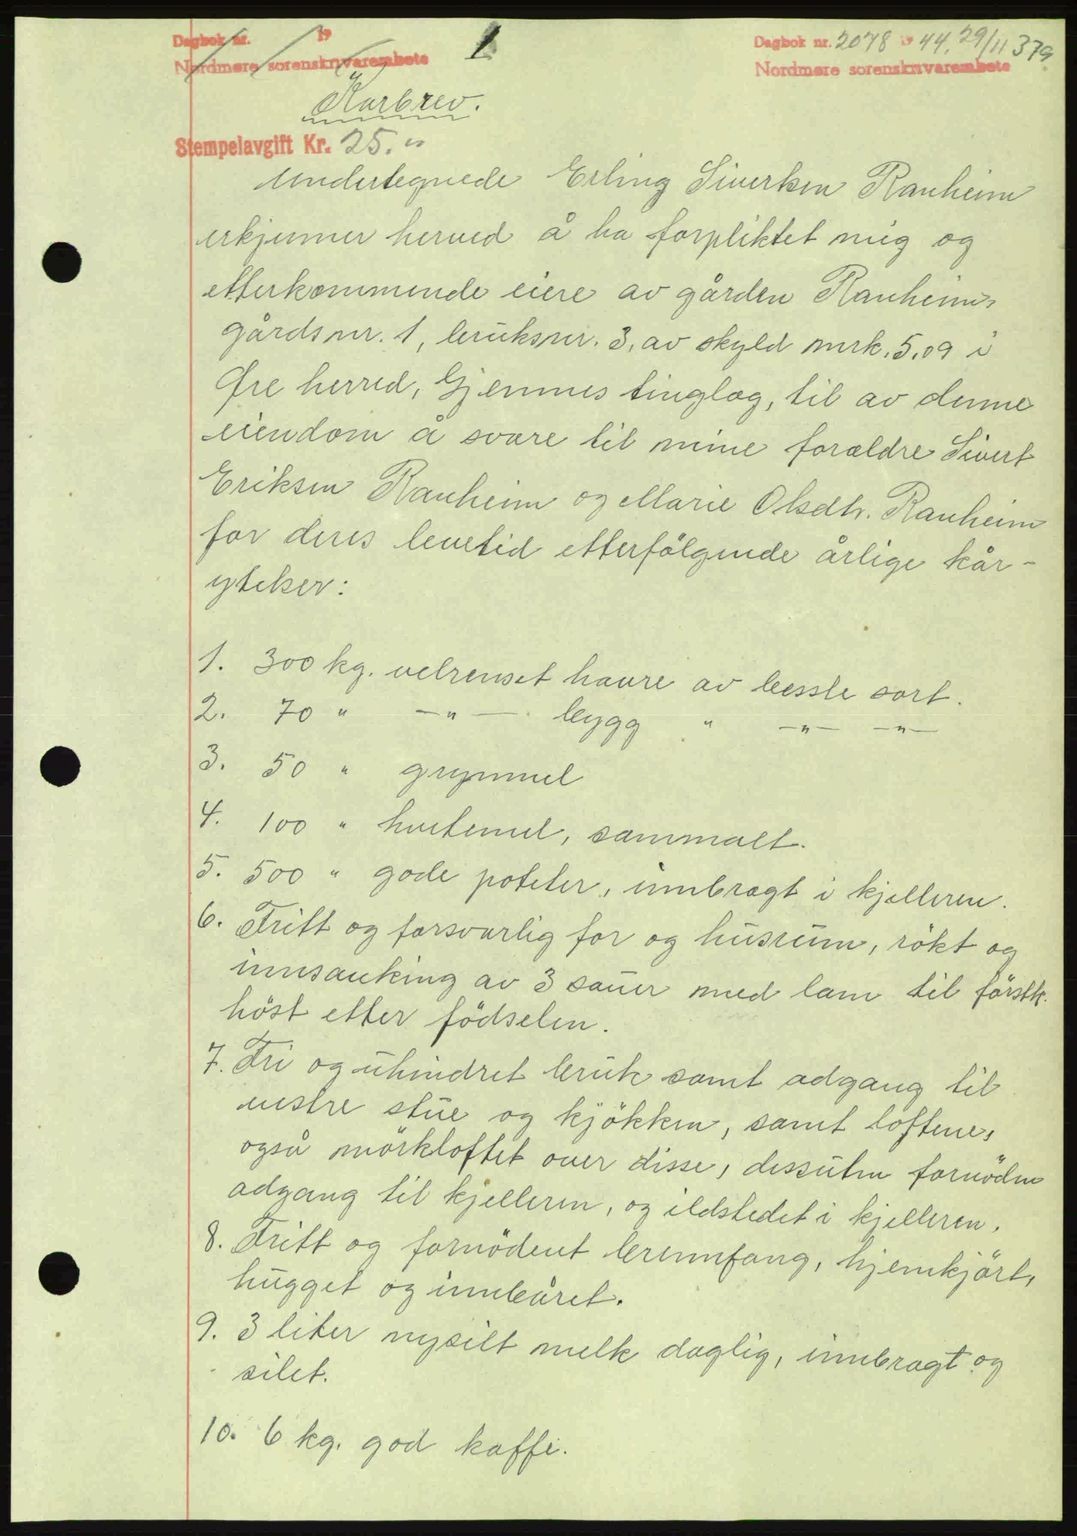 Dagbok nr. 19
Nordmøre sorenskriverembete
1
Dagbok nr. 2078 19 44. 29/11 379
Nordmøre sorenskriverembete
Kårbrev.
Stempelavgift Kr. 25.
Undertegnede Erling Sivertsen Ranheim
erkjenner herved å ha forpliktet mig og
etterkommende eiere av gården Ranheim,
gårdsnr. 1, bruksnr. 3, av skyld mrk. 5,09 i
Øre herred, Gjemnes tinglag, til av denne
eiendom å svare til mine foreldre Sivert
Eriksen Ranheim og Marie Olsdtr. Ranheim
for deres levetid etterfölgende årlige kår-
ytelser:
1. 300 kg. velrenset havre av beste sort.
2. 70 " —"— bygg " —"— —"—
3. 50 " grynmel
4. 100 " hvetemel, sammalt.
5. 500 " gode poteter, innbragt i kjelleren.
6. Fritt og forsvarlig for og husrum, rökt og
innsanking av 3 sauer med lam til förstk.
höst etter födselen.
7. Fri og uhindret bruk samt adgang til
vestre stue og kjökken, samt loftene,
også mörkloftet over disse, dessuten fornöden
adgang til kjelleren, og ildstedet i kjelleren.
8. Fritt og fornödent brennfang, hjemkjört,
hugget og innbåret.
9. 3 liter nysilt melk daglig, innbragt og
silet.
10. 6 kg. god kaffe.